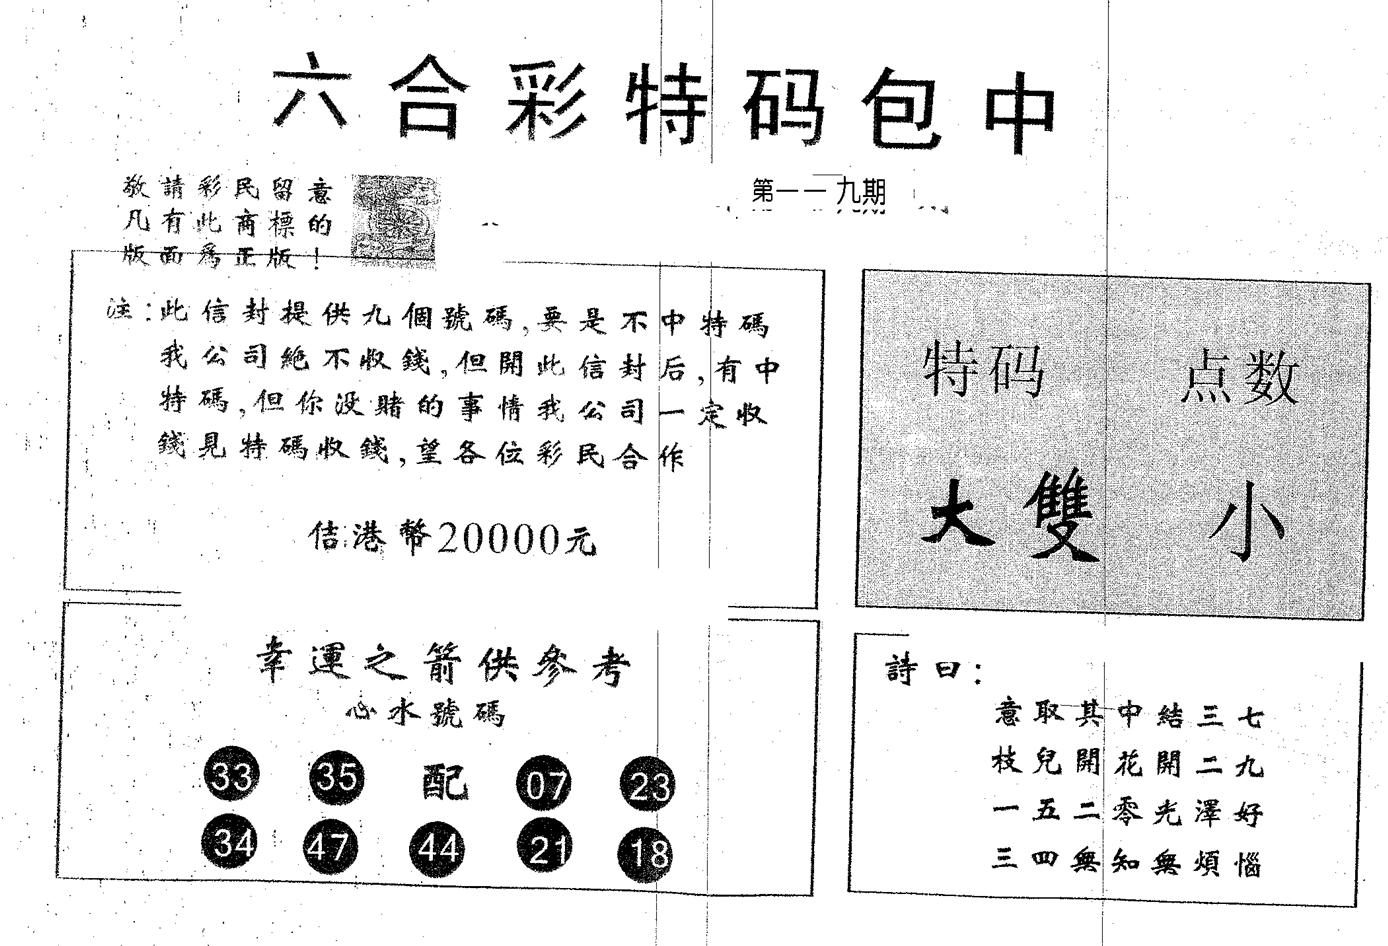 六合彩特码包中
敬請彩民留意
凡有此商標的
版面爲正版！
第一一九期
注：此信封提供九個號碼，要是不中特碼
我公司絶不收錢，但開此信封后，有中
特碼，但你没賭的事情我公司一定收
錢見特碼收錢，望各位彩民合作
佶港幣20000元
特码 点数
大雙 小
幸運之箭供參考
心水號碼
33 35 配 07 23
34 47 44 21 18
詩曰：
意取其中結三七
枝兒開花開二九
一五二零光澤好
三四無知無煩惱